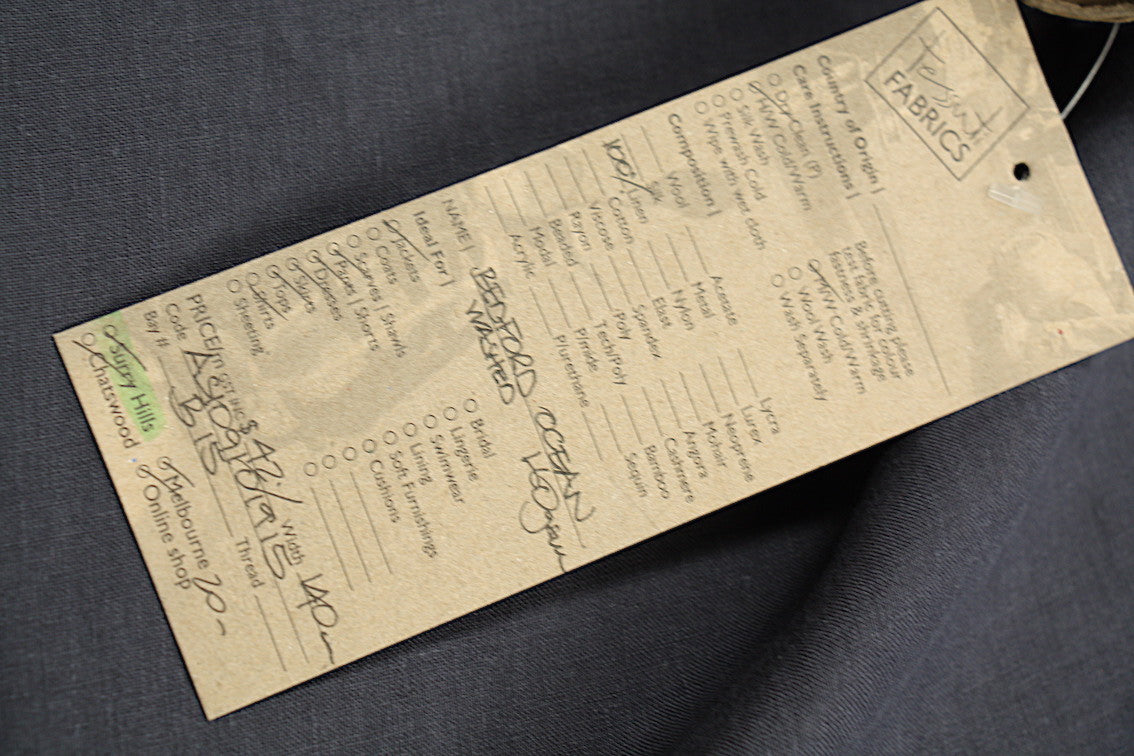 Tessuti
FABRICS
Country of Origin |
Care Instructions |
Dry-Clean (P)
H/W Cold/Warm
Silk Wash
Prewash Cold
Wipe with wet cloth
Before cutting please
test fabric for colour
fastness & shrinkage
M/W Cold/Warm
Wool Wash
Wash Separately
Composition |
Wool
Silk
100% Linen
Cotton
Viscose
Rayon
Beaded
Modal
Acrylic
Acetate
Metal
Nylon
Elast
Spandex
Poly
Tech/Poly
P/mide
P/urethane
Lycra
Lurex
Neoprene
Mohair
Angora
Cashmere
Bamboo
Sequin
NAME | BEDFORD OCEAN
WASHED
Ideal For |
Jackets
Coats
Scarves | Shawls
Pants | Shorts
Dresses
Skirts
Tops
Shirts
Sheeting
Bridal
Lingerie
Swimwear
Lining
Soft Furnishings
Cushions
PRICE/m (GST INC) $42/ Width 140cm
Code
Bay # B15 Thread
Surry Hills
Chatswood
Melbourne 20-
Online shop